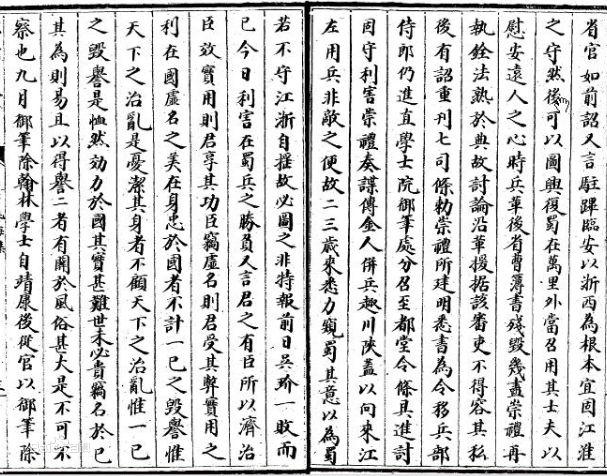 省官如前詔又言駐蹕臨安以浙西為根本宜固江淮
之守然後可以圖興復蜀在萬里外當召用其士夫以
慰安遠人之心時兵革後省曹簿書殘毀幾盡崇禮再
執銓法熟於典故討論沿革援據該審吏不得容其私
後有詔重刋七司條勅崇禮所建明悉書為令移兵部
侍郎仍進直學士院御筆處分召至都堂令條具進討
固守利害崇禮奏諜傳金人併兵趣川陝蓋以向來江
左用兵非敵之便故二三歲來悉力窺蜀其意以為蜀
若不守江浙自揺故必圖之非特報前日吳玠一敗而
已今日利害在蜀兵之勝負又言君之有臣所以濟治
臣效實用則君享其功臣竊虛名則君受其弊實用之
利在國虛名之美在身忠於國者不計一已之毀譽惟
天下之治亂是憂潔其身者不顧天下之治亂惟一已
之毀譽是恤然効力於國其實甚難世未必貴竊名於已
其為則易且以得譽二者有關於風俗甚大是不可不
察也九月御筆除翰林學士自靖康後從官以御筆除